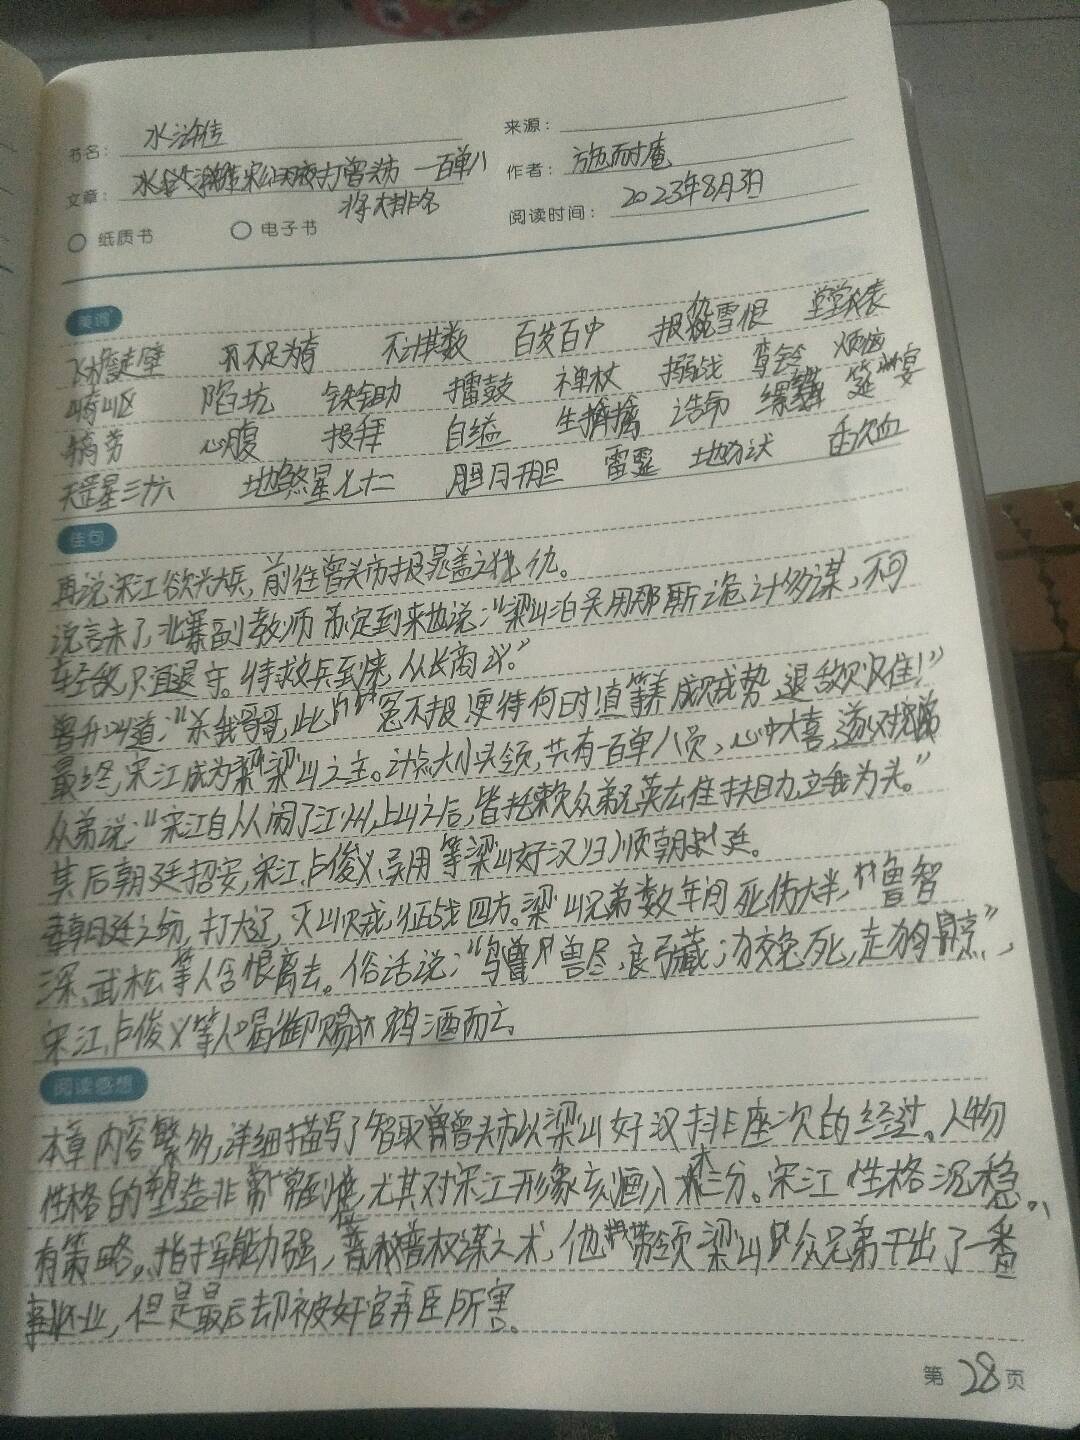 书名：水浒传
来源：
文章：宋公明夜打曾头市 一百单八
将大排名
作者：施耐庵
纸质书 电子书
阅读时间：2023年8月3日
美词
飞檐走壁 不足为奇 不计其数 百发百中 报仇雪恨 堂堂仪表
崎岖 陷坑 擂鼓 禅杖 搦战 鸾铃 烦恼
犒劳 心腹 投拜 自缢 生擒 诰命 缧 筵宴
天罡星三十六 地煞星七十二 胆肝胆 雷霆 地伏 歃血
佳句
再说宋江欲兴大兵，前往曾头市报晁盖之仇。
说言未了，北寨副教师苏定到来也说：“梁山泊吴用那厮诡计多谋，不可
轻敌，只宜退守。待救兵到来，从长商议。”
曾升叫道：“杀我哥哥，此冤不报更待何时！直等养成贼势，退敌则难！”
最终，宋江成为梁山之主。计点大小头领，共有一百单八员，心中大喜，遂对
众弟说：“宋江自从闹了江州，上山之后，皆托赖众弟兄英雄扶助，立我为头。”
其后朝廷招安，宋江、卢俊义、吴用等梁山好汉归顺朝廷。
打大辽，灭山贼，征战四方。梁山兄弟数年间死伤大半，鲁智
深、武松等人含恨离去。俗话说：“鸟兽尽，良弓藏；狡兔死，走狗烹”，
宋江、卢俊义等人喝御赐鸩酒而亡
阅读感想
本章内容繁多，详细描写了智取曾头市以梁山好汉排座次的经过。人物
性格的塑造非常到位，尤其对宋江形象刻画入木三分。宋江性格沉稳。
有策略。指挥能力强，善权谋之术，他带领梁山众兄弟干出了一番
事业，但是最后却被奸官弄臣所害。
第28页